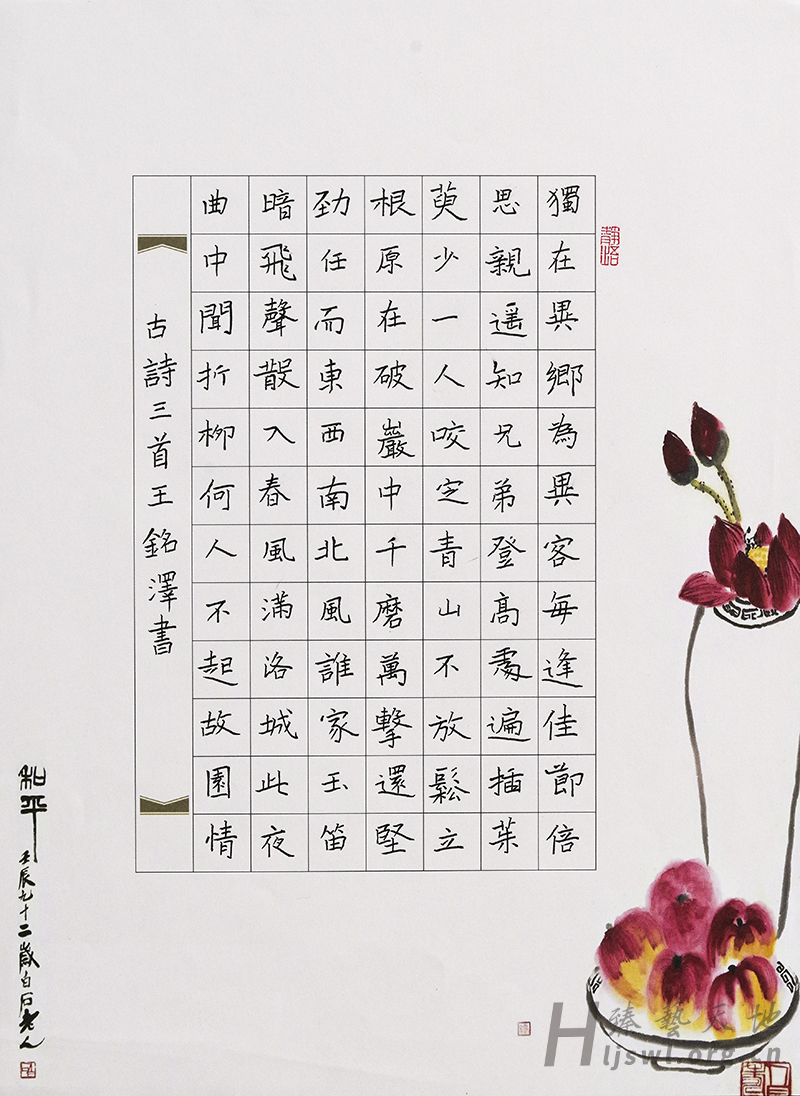 獨在異鄉為異客每逢佳節倍
思親遥知兄弟登高處遍插茱
萸少一人咬定青山不放鬆立
根原在破巖中千磨萬擊還堅
勁任而東西南北風誰家玉笛
暗飛聲散入春風滿洛城此夜
曲中聞折柳何人不起故園情
古詩三首王銘澤書
和平
壬辰九十二歲白石老人
臻藝天地
Hljswl.org.cn